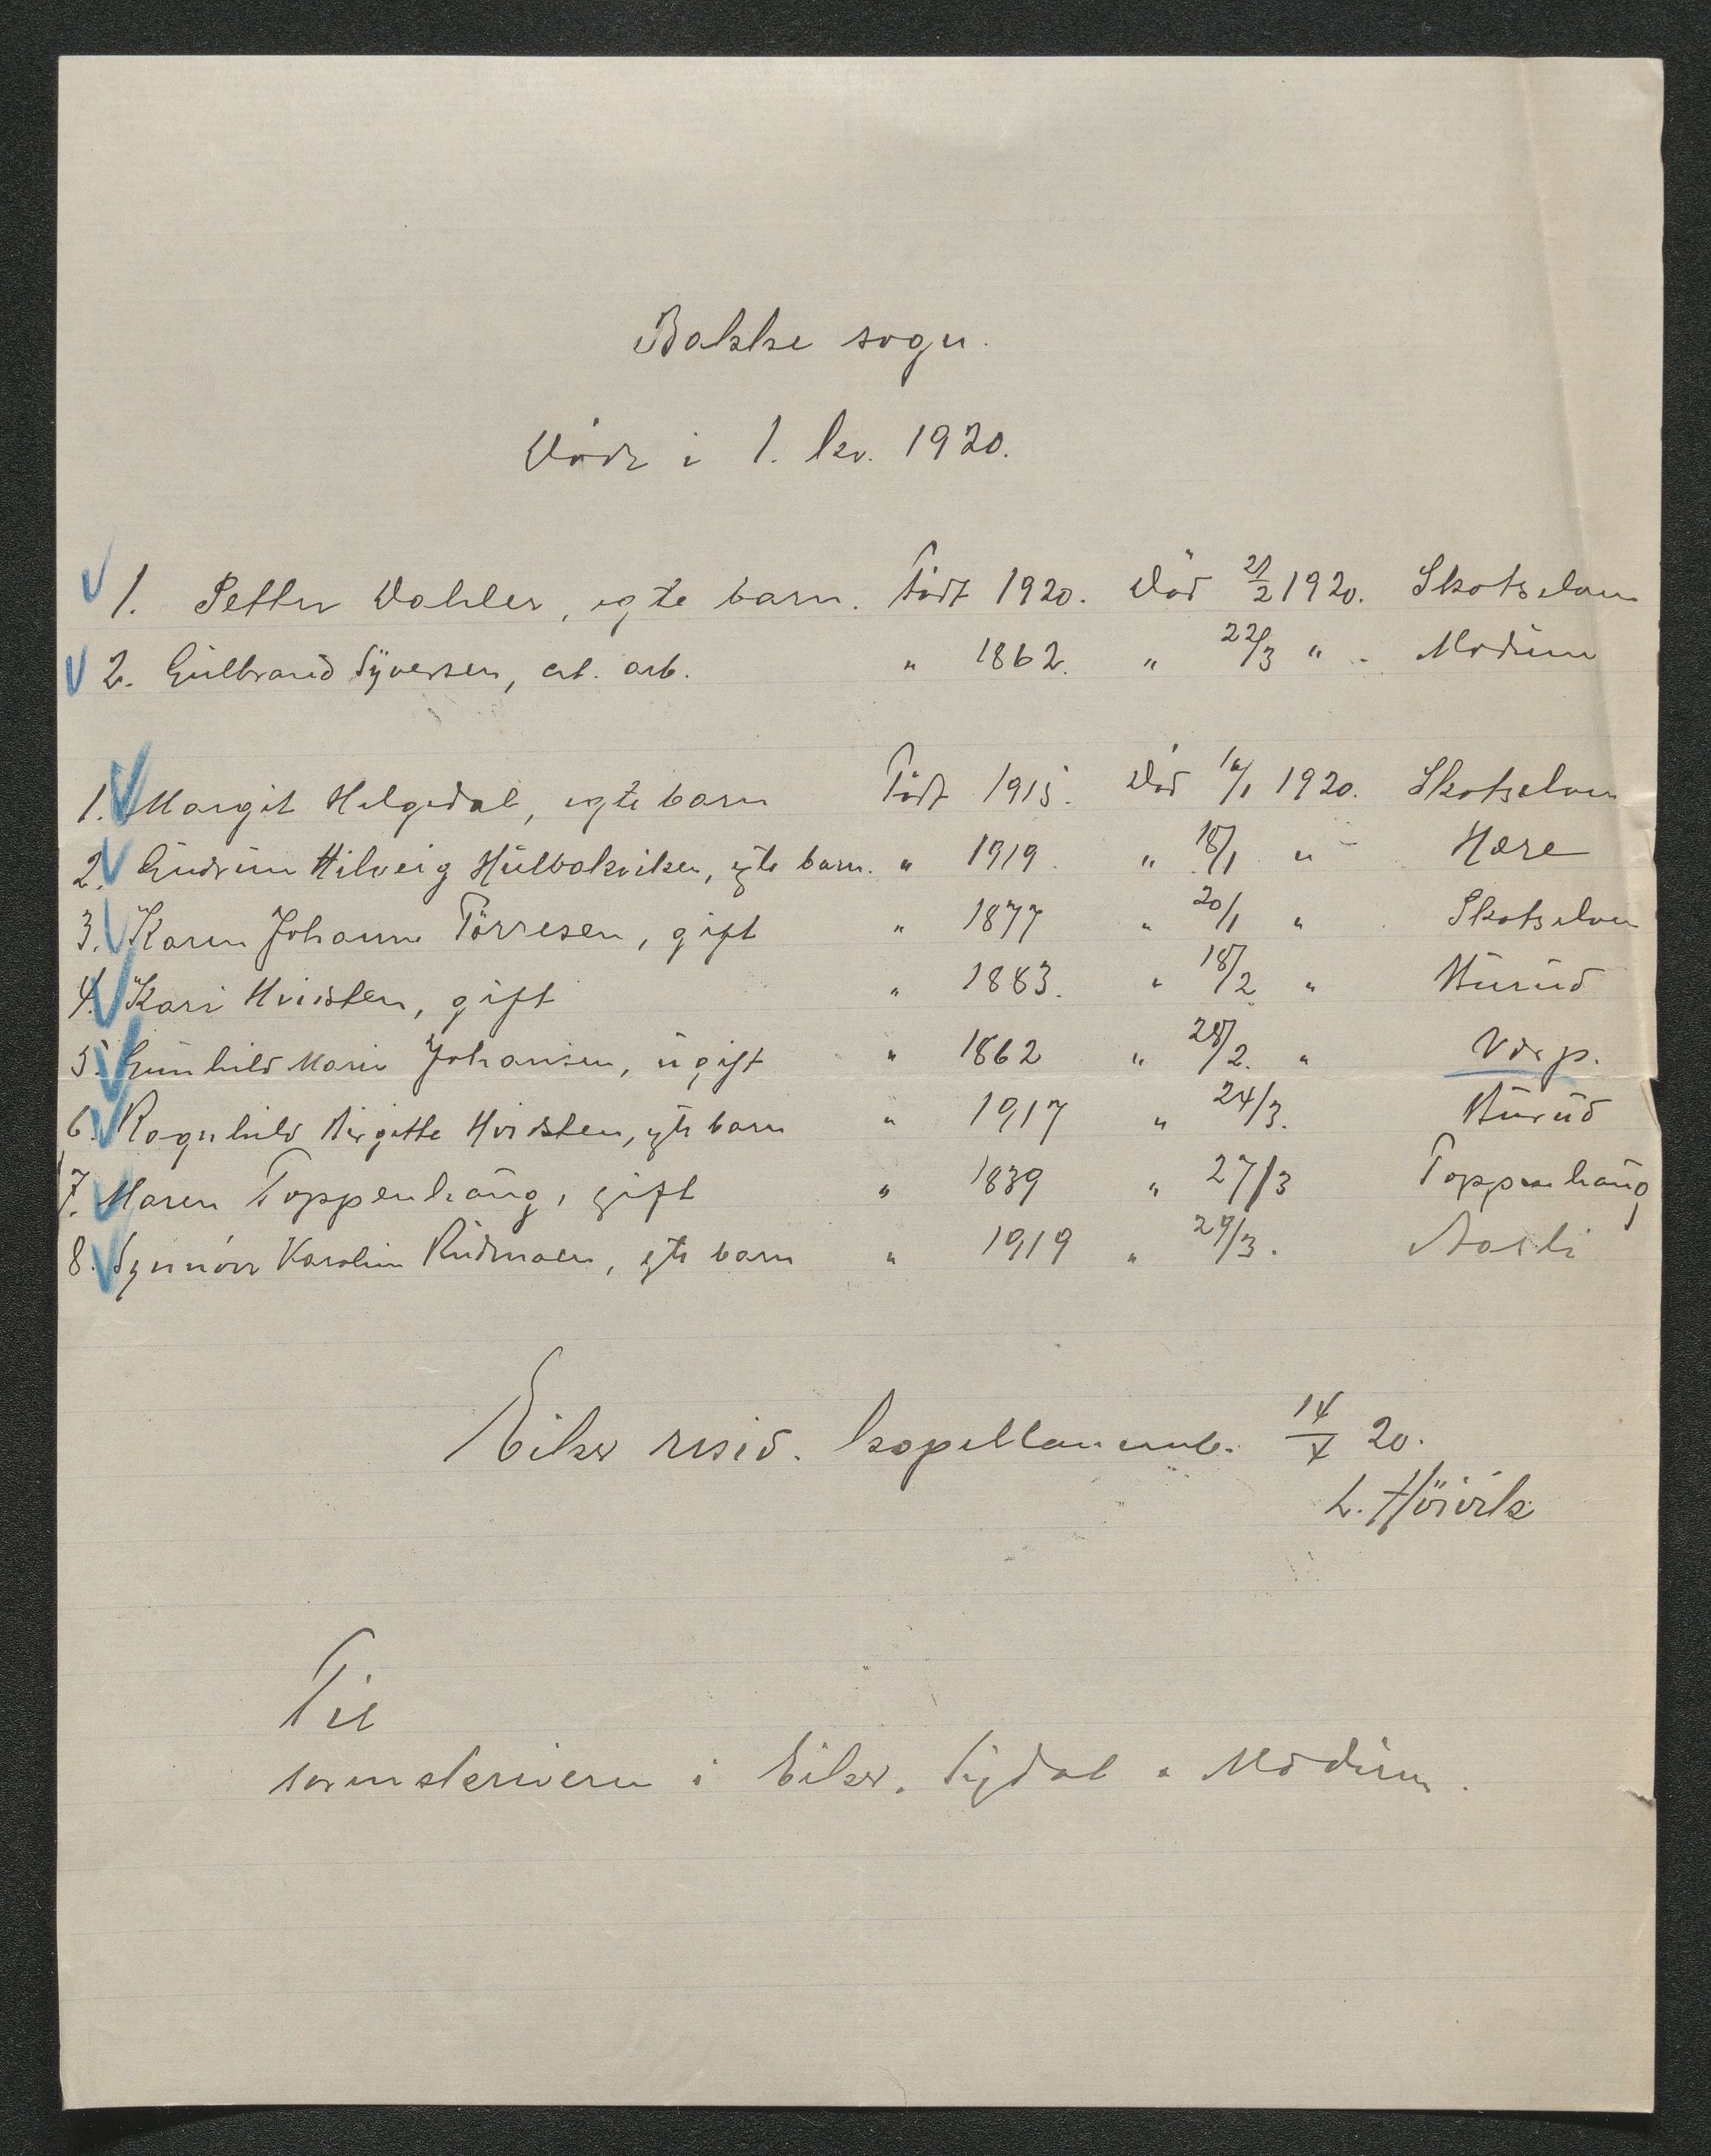 Bakke sogn.
Døde i 1. kv. 1920.
1. Petter Dahler, egte barn. Født 1920. Død 21/2 1920. Skotselven
2. Gulbrand Syversen, arb. " 1862. " 22/3 " . Modum
1. Margit Helgedal, egte barn Født 1915. Død 16/1 1920. Skotselven
2. Gudrun Hilveig Hulbakviken, egte barn. " 1919. " 18/1 " Hære
3. Karen Johanne Tørresen, gift " 1877 " 20/1 " Skotselven
4. Kari Hvidsten, gift " 1883. " 18/2 " Burud
5. Gunhild Marie Johansen, ugift " 1862 " 28/2. "
6. Ragnhild Birgitte Hvidsten, egte barn " 1917 " 24/3. Burud
7. Maren Toppenhaug, gift " 1839 " 27/3 Toppenhaug
8. Synnøve Karoline Rudmoen, egte barn " 1919 " 29/3. Aasli
Eiker resid. kapellanemb. 14/4 20.
L. Høivik
Til
sorenskriveren i Eiker, Sigdal o Modum.